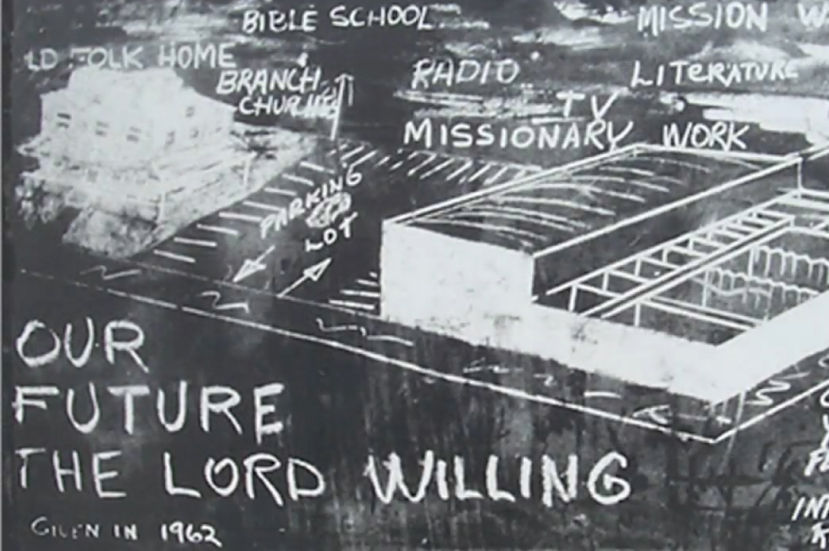 BIBLE SCHOOL
MISSION W
LD FOLK HOME
BRANCH
CHURCH
RADIO
LITERATURE
TV
MISSIONARY WORK
PARKING
LOT
OUR
FUTURE
THE LORD WILLING
GIVEN IN 1962